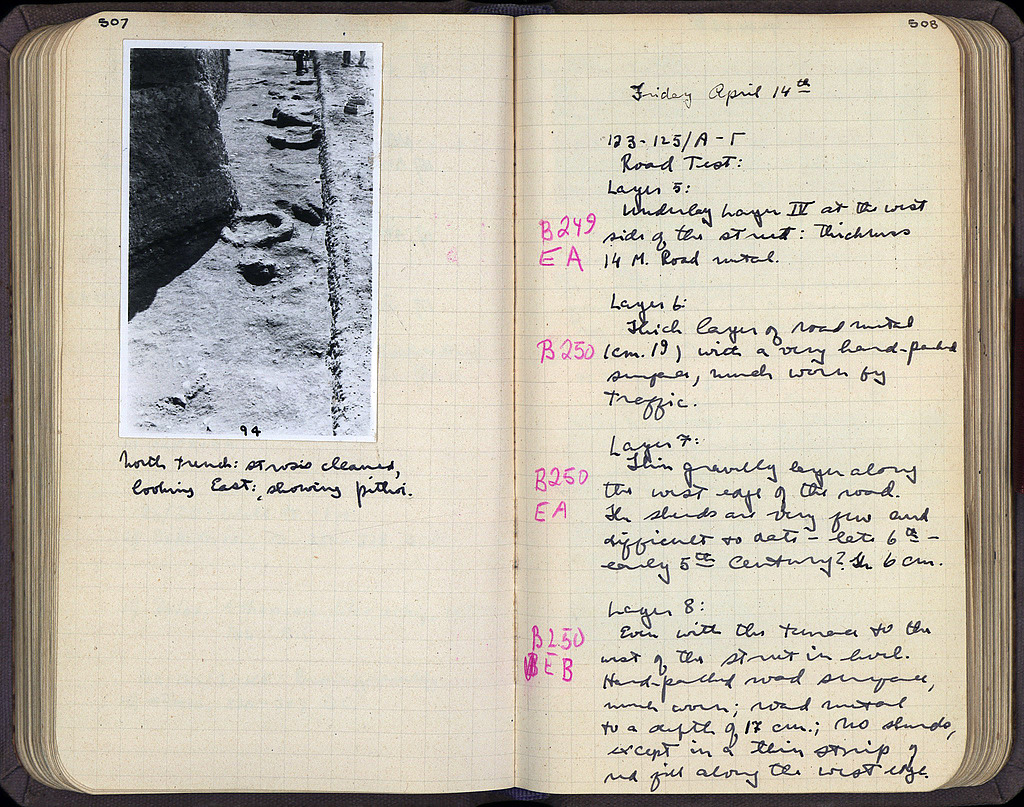 507
94
North trench: strosis cleaned,
looking East:, showing pithoi.
508
Friday April 14th
123-125/A-Γ
Road Test:
Layer 5:
Underlay Layer IV at the west
B249
side of the street: thickness
EA
14 M. Road metal.
Layer 6:
Thick layer of road metal
B250
(cm. 19) with a very hard-packed
surface, much worn by
traffic.
Layer 7:
Thin gravelly layer along
B250
the west edge of the road.
EA
The sherds are very few and
difficult to date - late 6th -
early 5th Century? Th 6 cm.
Layer 8:
Even with the terrace to the
B250
west of the street in level.
EB
Hard-packed road surface,
much worn; road metal
to a depth of 17 cm.; no sherds,
except in a thin strip of
red fill along the west edge.